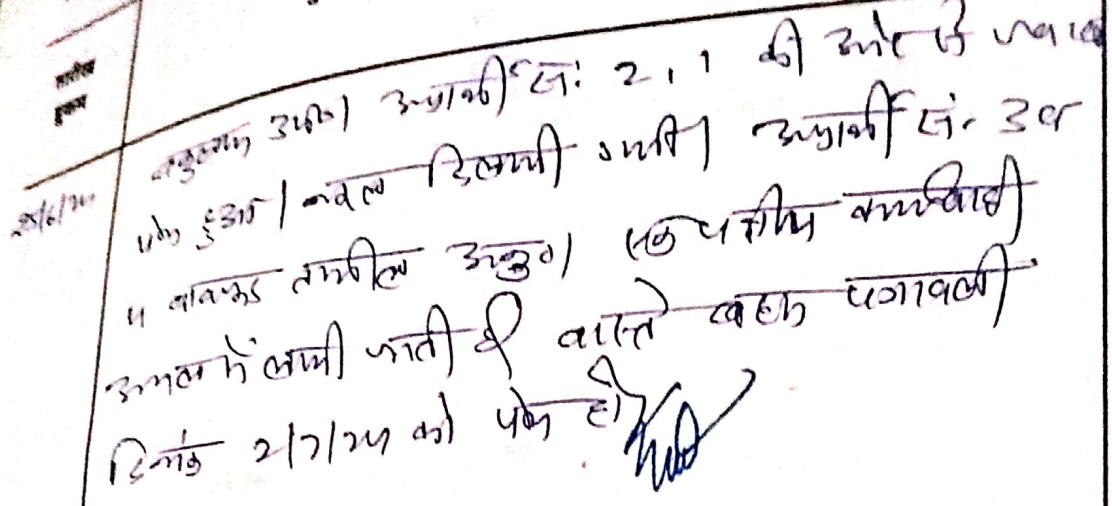 तारीख
हुक्म
वकुलाय उप0। अप्रार्थी सं: 2, 1 की ओर से जवाब
25/6/24 पेश हुआ। नकल दिलायी गयी। अप्रार्थी सं. 3 व
4 बावजूद तामील अनु0। एक पक्षीय कार्यवाही
अमल में लायी जाती है वास्ते बहस पत्रावली
दिनांक 2/7/24 को पेश हो